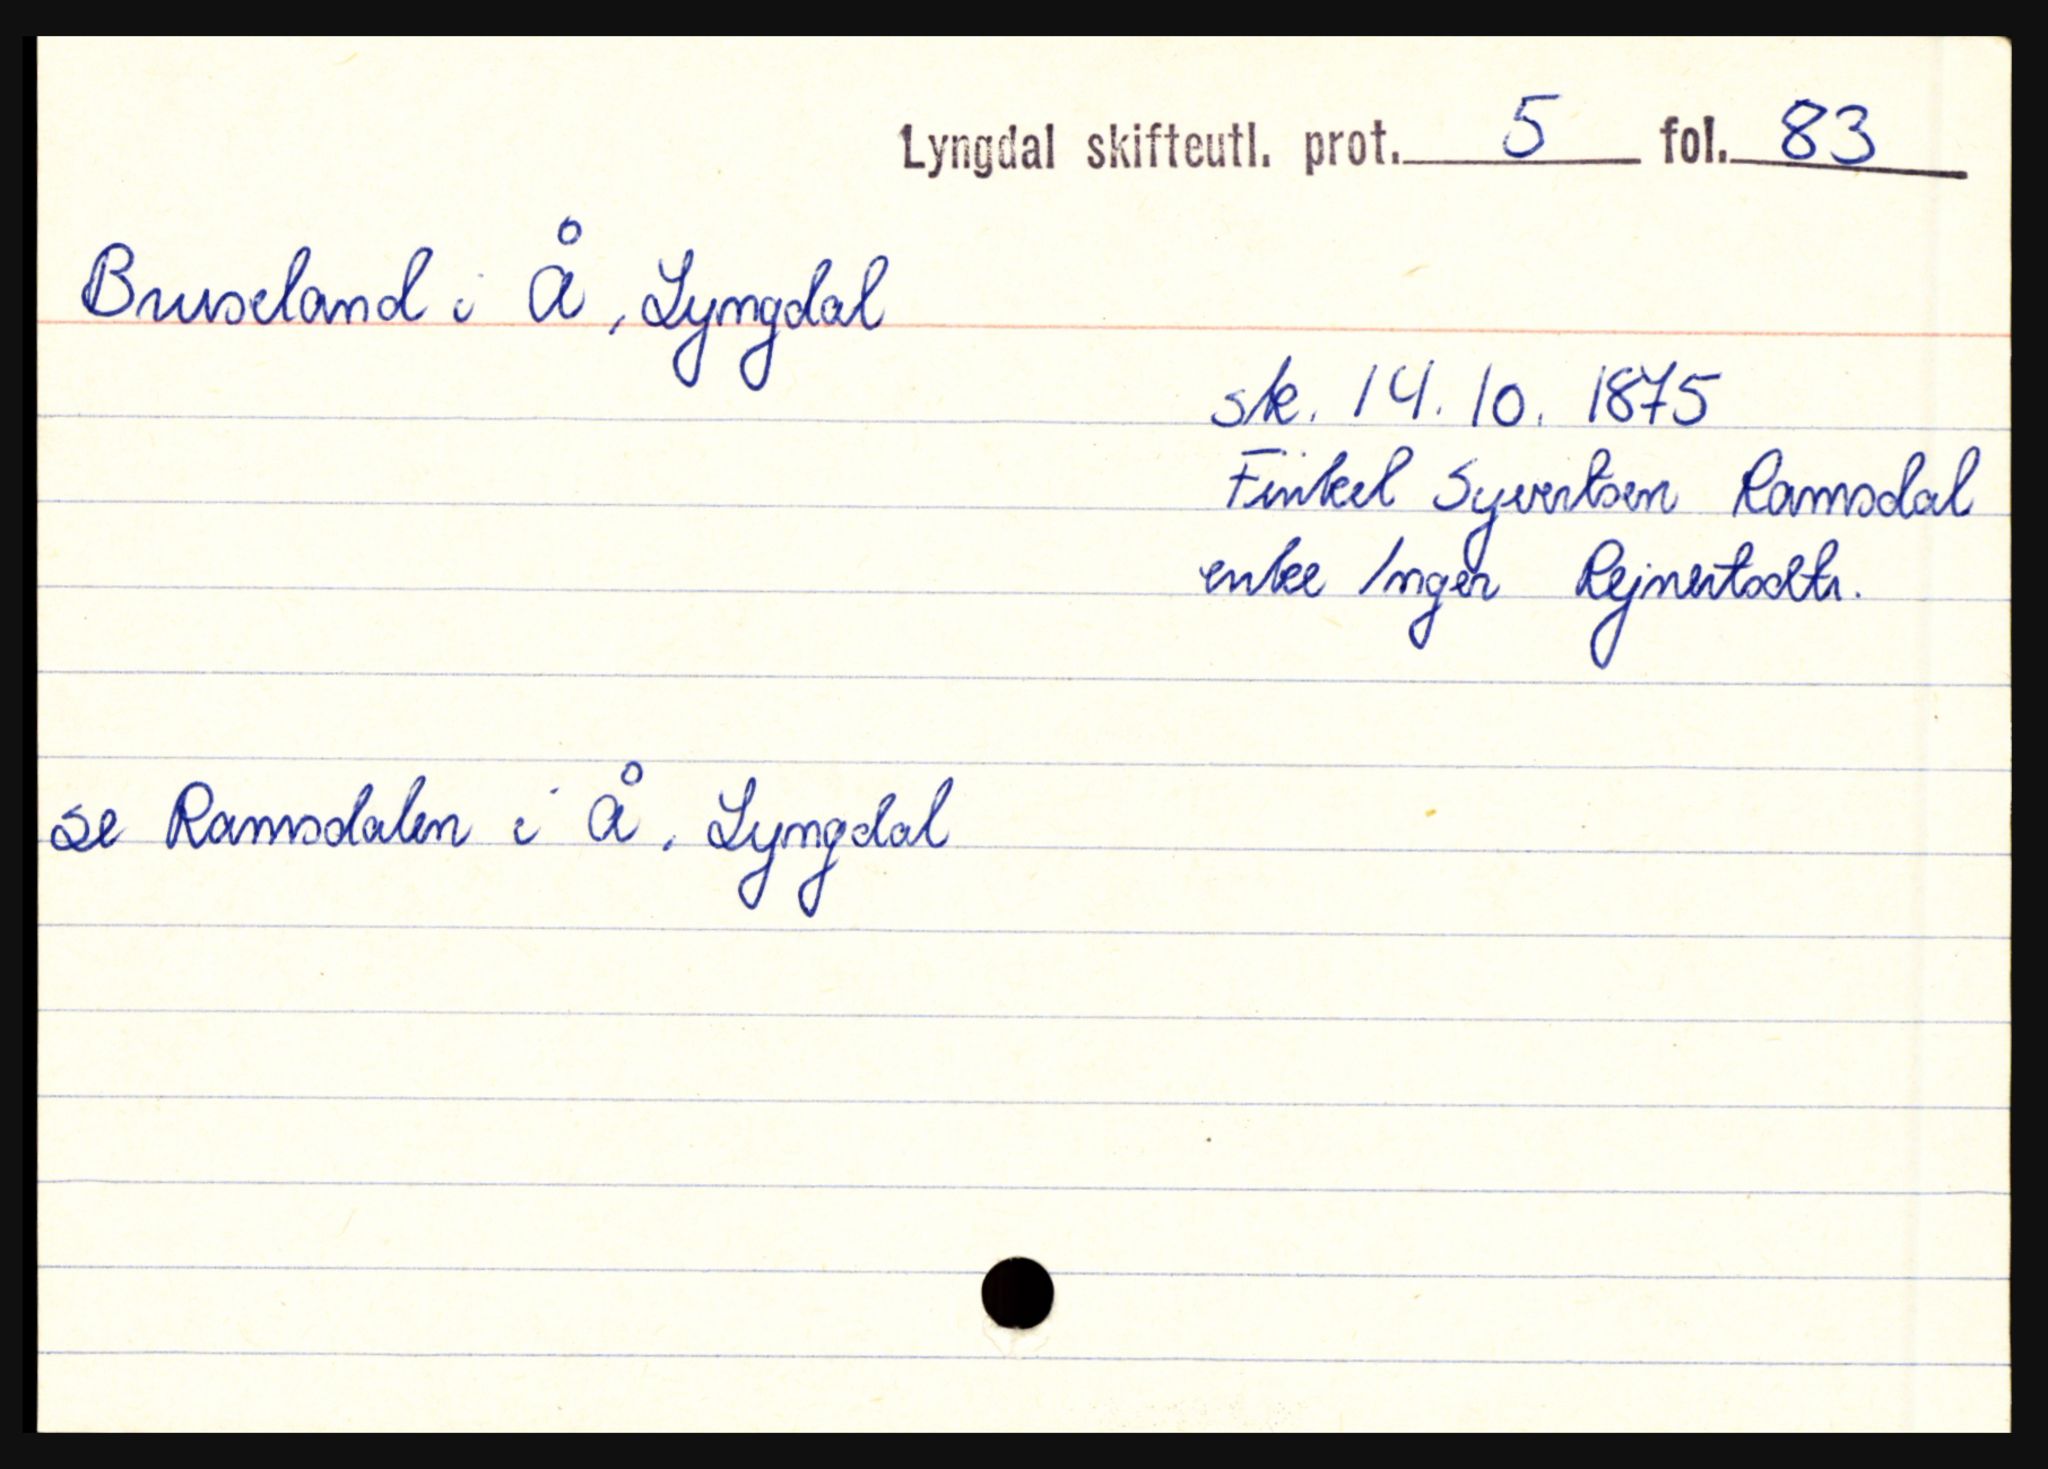 Lyngdal skifteutl. prot. 5 fol. 83
Bruseland i Å, Lyngdal
sk. 14. 10. 1875
Finkel Syvertsen Ramsdal
enke Inger Rejnertsdtr.
se Ramsdalen i Å, Lyngdal